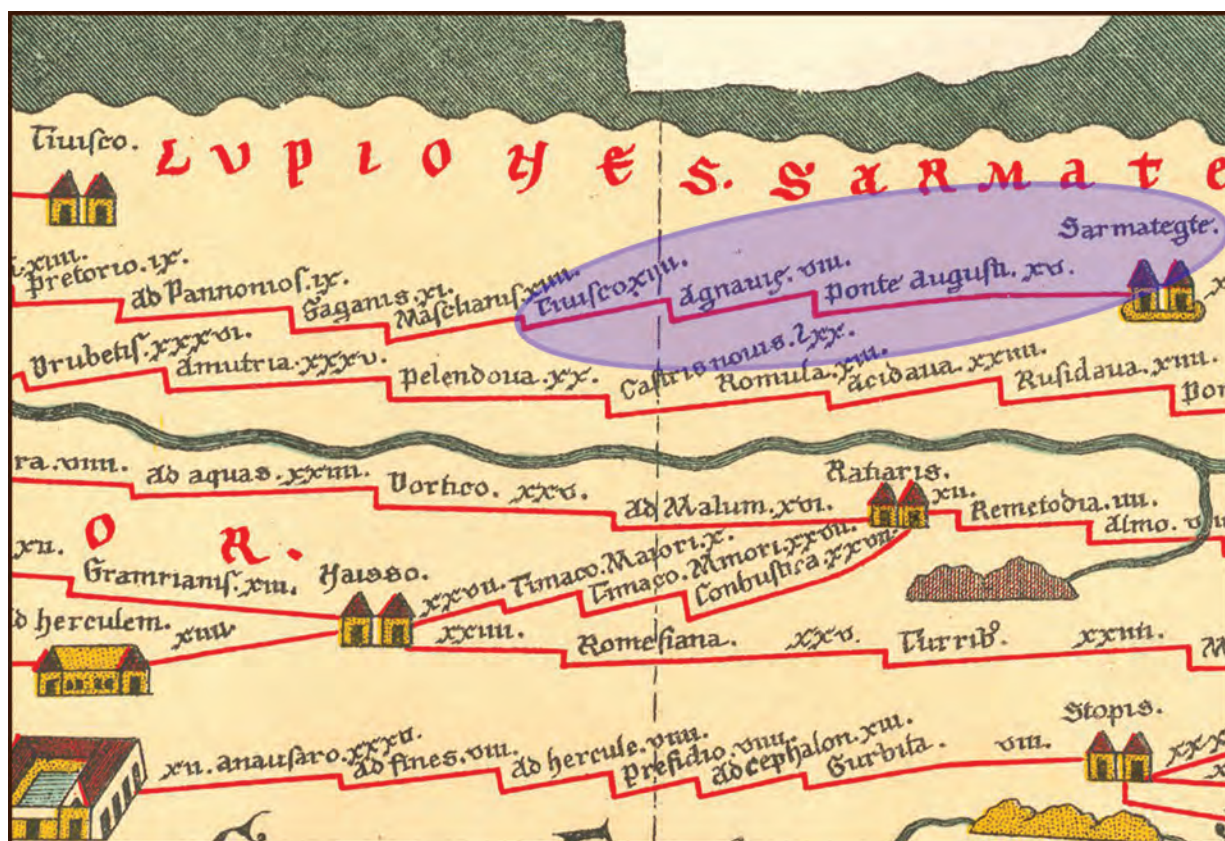 Tiuisco.
LUPIONES. SARMATE
Sarmategte.
xiiii.
Pretorio.ix.
ad Pannonios.ix.
Gaganis.xi.
Masclianiς.xiiii.
Tiuisco.xiiii.
Agnauie.viii.
Ponte augusti.xv.
Vrubetis.xxxvi.
Amutria.xxxv.
Pelendova.xx.
Castris novis.lxx.
Romula.xiii.
Acidaua.xxiiii.
Rusidava.xiiii.
Pon
ra.viiii.
ad aquas.xxiiii.
Dortico. xxv.
ad Malum.xvi.
Ratiaris.
xii.
Remetodia.iiii.
Almo.
O R.
xii.
Gramrianis.xiii.
Naisso.
xxvii.
Timaco. Maiori.x.
Timaco. Minori.xxvii.
Conbustica.xxvii.
d herculem.
xiiii.
xxiiii.
Romesiana. xxv.
Turrib. xxiiii.
M
Stopis.
xii.
anausaro.xxxv.
ad fines.viii.
ad hercule.viiii.
Presidio.viiii.
ad cephalon.xiii.
Gurbita. viii.